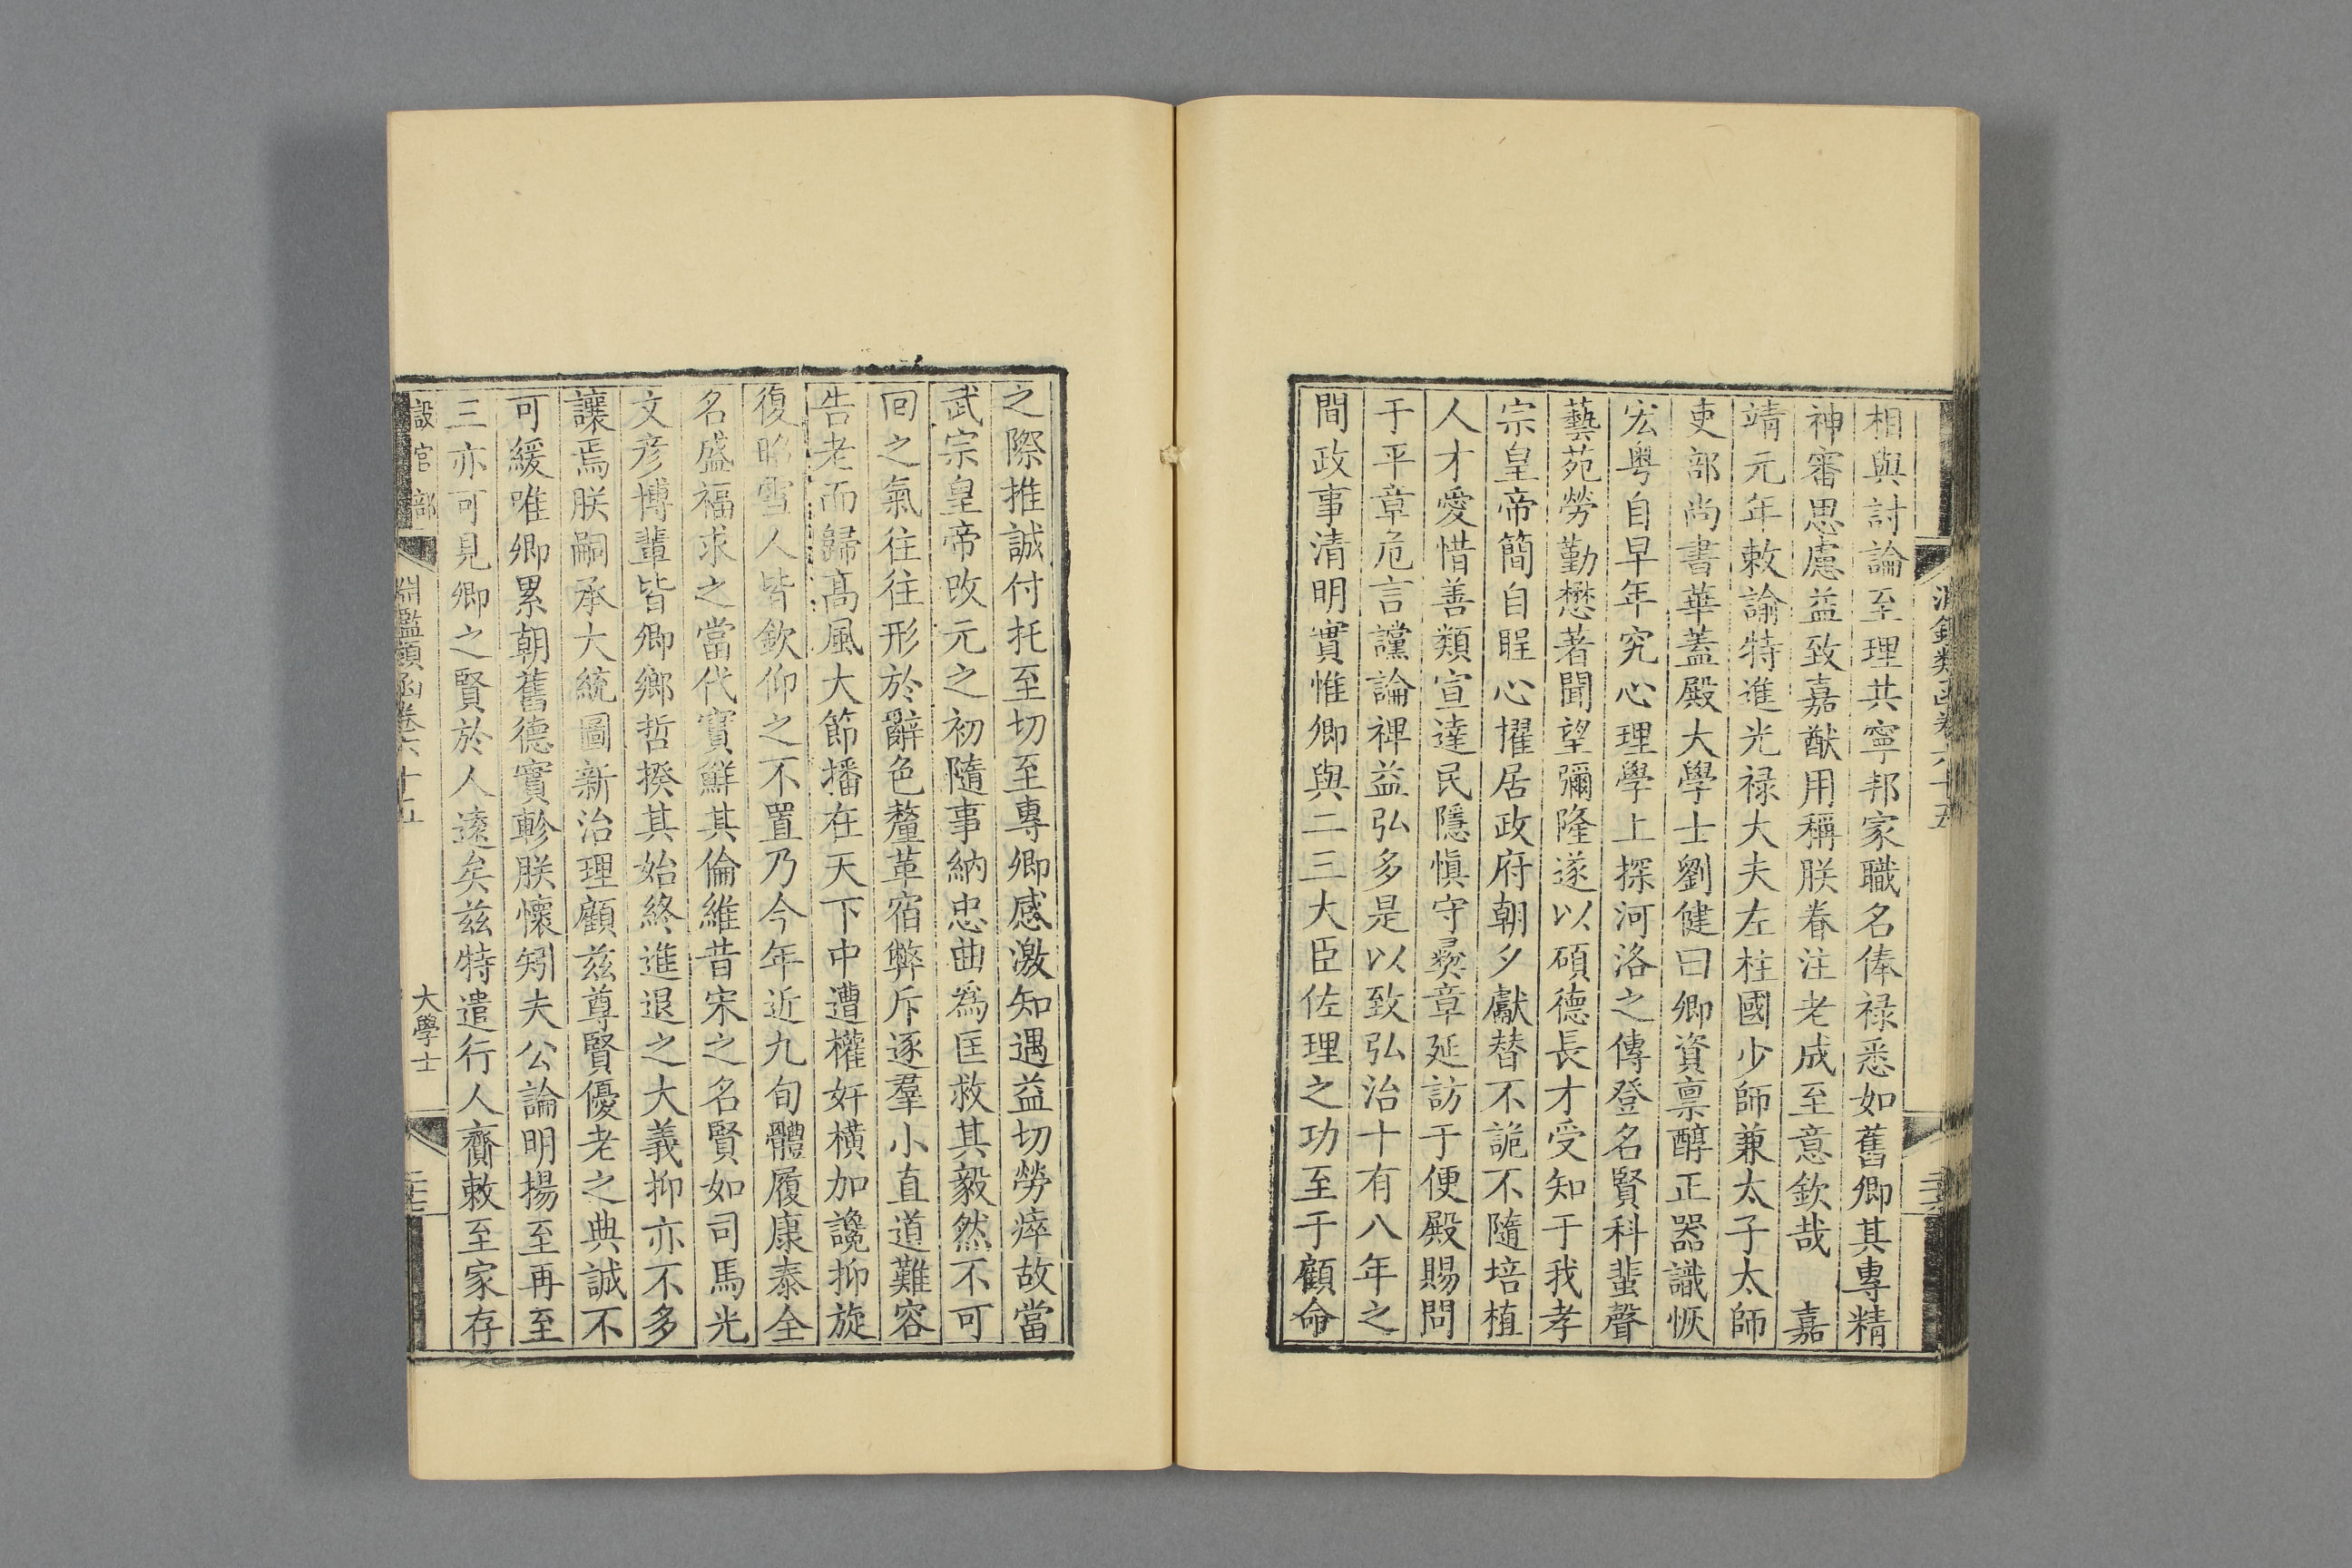 相與討論至理共寧邦家職名俸祿悉如舊卿其專精
神審思慮益致嘉猷用稱朕眷注老成至意欽哉　嘉
靖元年敕諭特進光祿大夫左柱國少師兼太子太師
吏部尚書華蓋殿大學士劉健曰卿資禀醇正器識恢
宏粤自早年究心理學上探河洛之傳登名賢科蜚聲
藝苑勞勤懋著聞望彌隆遂以碩德長才受知于我孝
宗皇帝簡自眶心擢居政府朝夕獻替不詭不隨培植
人才愛惜善類宣達民隱慎守彛章延訪于便殿賜問
于平章危言讜論裨益弘多是以致弘治十有八年之
間政事清明實惟卿與二三大臣佐理之功至于顧命
之際推誠付托至切至專卿感激知遇益切勞瘁故當
武宗皇帝改元之初隨事納忠曲爲匡救其毅然不可
回之氣往往形於辭色釐革宿弊斥逐羣小直道難容
告老而歸高風大節播在天下中遭權奸橫加讒抑旋
復昭雪人皆欽仰之不置乃今年近九旬體履康泰全
名盛福求之當代實鮮其倫維昔宋之名賢如司馬光
文彦博輩皆卿鄉哲揆其始終進退之大義抑亦不多
讓焉朕嗣承大統圖新治理顧兹尊賢優老之典誠不
可緩唯卿累朝舊德實軫朕懷矧夫公論明揚至再至
三亦可見卿之賢於人遠矣兹特遣行人齎敕至家存
設官部　淵鑑類函卷六十五　大學士